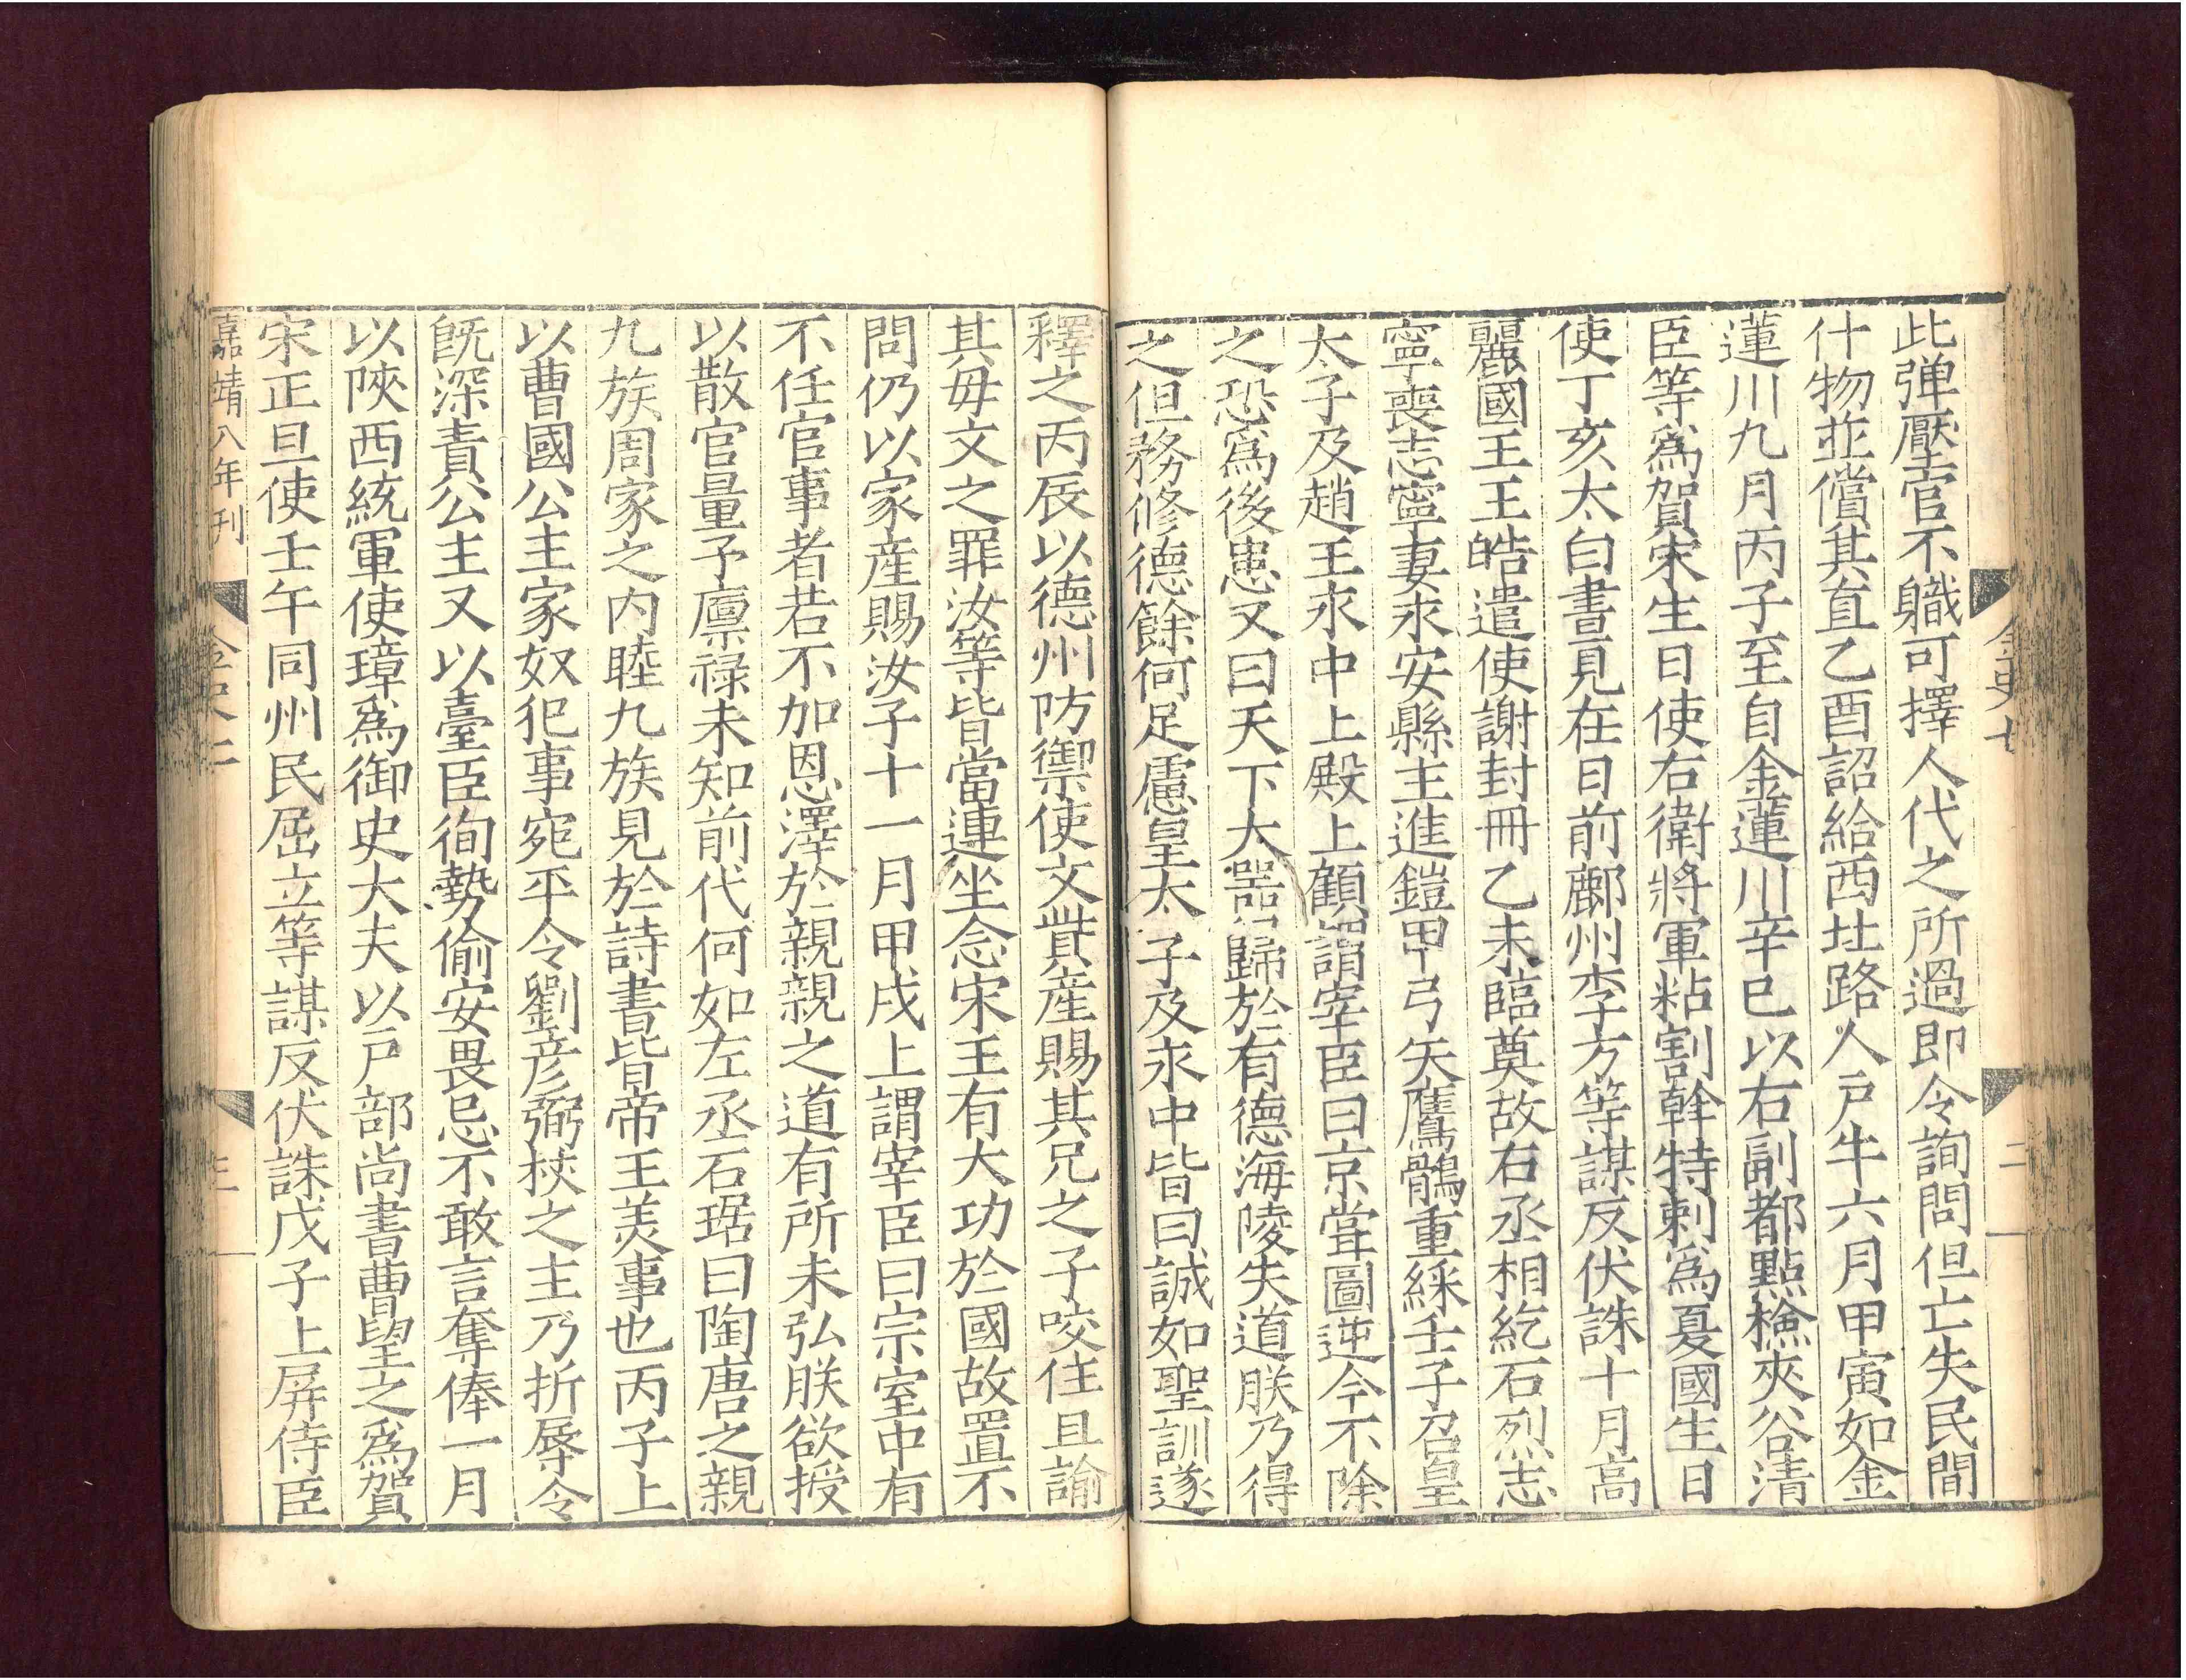 此弹壓官不職可擇人代之所過即令詢問但亡失民間
什物並償其直乙酉詔給西北路人戶牛六月甲寅如金
蓮川九月丙子至自金蓮川辛巳以右副都點檢夾谷清
臣等爲賀宋生日使右衛將軍粘割斡特剌爲夏國生日
使丁亥太白晝見在日前鄜州李方等謀反伏誅十月高
麗國王王皓遣使謝封冊乙未臨奠故右丞相紇石烈志
寧喪志寧妻永安縣主進鎧甲弓矢鷹鶻重綵壬子召皇
太子及趙王永中上殿上顧謂宰臣曰京嘗圖逆今不除
之恐爲後患又曰天下大器歸於有德海陵失道朕乃得
之但務修德餘何足慮皇太子及永中皆曰誠如聖訓遂
金史七
二
釋之丙辰以德州防禦使文貲産賜其兄之子咬住且諭
其毋文之罪汝等皆當連坐念宋王有大功於國故置不
問仍以家産賜汝子十一月甲戌上謂宰臣曰宗室中有
不任官事者若不加恩澤於親親之道有所未弘朕欲授
以散官量予廪禄未知前代何如左丞石琚曰陶唐之親
九族周家之内睦九族見於詩書皆帝王美事也丙子上
以曹國公主家奴犯事宛平令劉彦弼杖之主乃折辱令
旣深責公主又以臺臣徇勢偷安畏忌不敢言奪俸一月
以陜西統軍使璋爲御史大夫以戸部尚書曹望之爲賀
宋正旦使壬午同州民屈立等謀反伏誅戊子上屏侍臣
嘉靖八年刊